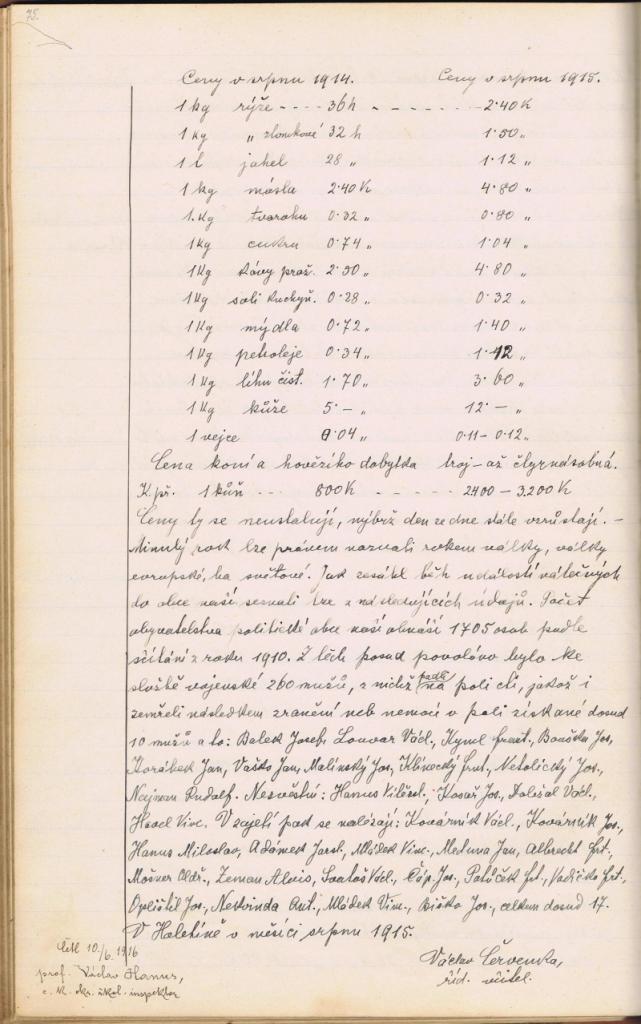 75.
Ceny v srpnu 1914. Ceny v srpnu 1915.
1 kg rýže ---- 36 h ------- 2·40 K
1 kg „ zlomkové 32 h 1·50 „
1 l jahel 28 „ 1·12 „
1 kg másla 2·40 K 4·80 „
1 kg tvarohu 0·32 „ 0·80 „
1 kg cukru 0·74 „ 1·04 „
1 kg kávy praž. 2·30 „ 4·80 „
1 kg soli kuchyň. 0·28 „ 0·32 „
1 kg mýdla 0·72 „ 1·40 „
1 kg petroleje 0·34 „ 1·12 „
1 kg líhu čist. 1·70 „ 3·60 „
1 kg kůže 5·– „ 12·– „
1 vejce 0·04 „ 0·11–0·12 „
Cena koní a hovězího dobytka troj- až čtyrnásobná.
K. př. 1 kůň --- 800 K ----- 2400 – 3.200 K
Ceny ty se neustalují, nýbrž den ze dne stále vzrůstají. –
Minulý rok lze právem nazvati rokem války, války
evropské, ba světové. Jak zasáhl běh událostí válečných
do obce naší seznati lze z následujících údajů. Počet
obyvatelstva politické obce naší obnáší 1705 osob podle
sčítání z roku 1910. Z těch posud povoláno bylo ke
službě vojenské 260 mužů, z nichž padli na poli cti, jakož i
zemřeli následkem zranění neb nemocí v poli získané dosud
10 mužů a to: Bělek Josef, Louvar Václ., Kynčl Frant., Bouška Jos.,
Korábek Jan, Vaško Jan, Malínský Jos., Klínecký Frt., Netolický Jos.,
Najman Rudolf. Nezvěstni: Hanus Vilést., Kosař Jos., Doležal Václ.,
Havel Vinc. V zajetí pak se nalézají: Kovárník Václ., Kovárník Jos.,
Hanus Miloslav, Adámek Jarsl., Mládek Vinc., Meduna Jan, Albrecht Frt.,
Mosner Oldř., Zeman Alois, Václ., Čáp Jos., Patůček Frt., Vodička Frt.,
Opletil Jos., Netvinda Ant., Mládek Vinc., Jos., celkem dosud 17.
V Holetíně v měsíci srpnu 1915.
Václav Červenka,
říd. učitel.
četl 10./6. 1916
prof. Václav Hanus,
c. k. okr. škol. inspektor